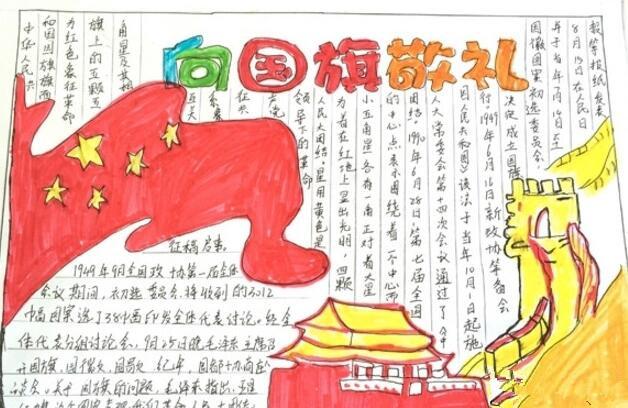 向国旗敬礼
中华人民共
和国国旗旗面
为红色象征革命
旗上的五颗五
角星及其相
互关
系象
征共
产党
领导下的革命
人民大团结,星用黄色是
为着在红地上显出光明,四颗
小五角星各有一角正对着大星
的中心点,表示围绕着一个中心而
团结。1990年6月28日第七届全国
人大常委会第十四次会议通过了《中
国人民共和国》该法于当年10月1日起施
行,1949年6月16日新政协筹备会
决定成立国旗
国徽图案初选委员会,
并于当年7月14日至
8月15日在人民日
报等报纸发表
征稿启事。
1949年9月全国政协第一届全体
会议期间,初选委员会将收到的3012
幅图案选了38幅印发全体代表讨论。经全
体代表分组讨论会,9月25日晚毛泽东主席召
开国旗、国徽、国歌、纪年、国都协商座
谈会。关于国旗的问题,毛泽东指出